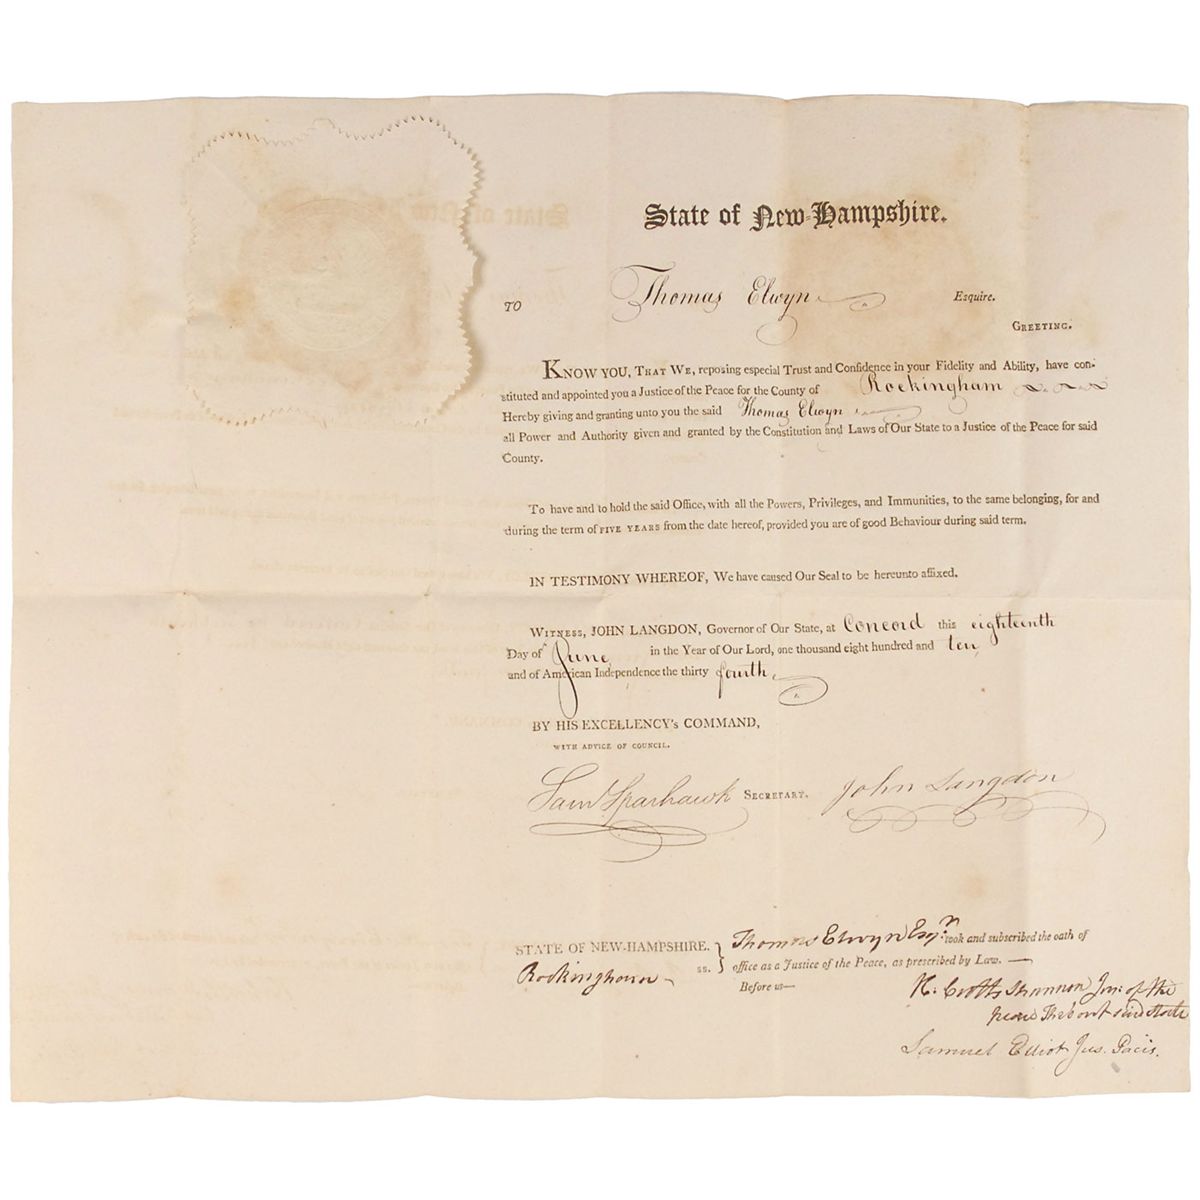 State of New-Hampshire.
TO Thomas Elwyn Esquire.
GREETING.
KNOW YOU, THAT WE, reposing especial Trust and Confidence in your Fidelity and Ability, have con-
stituted and appointed you a Justice of the Peace for the County of Rockingham
Hereby giving and granting unto you the said Thomas Elwyn
all Power and Authority given and granted by the Constitution and Laws of Our State to a Justice of the Peace for said
County.
To have and to hold the said Office, with all the Powers, Privileges, and Immunities, to the same belonging, for and
during the term of FIVE YEARS from the date hereof, provided you are of good Behaviour during said term.
IN TESTIMONY WHEREOF, We have caused Our Seal to be hereunto affixed.
WITNESS, JOHN LANGDON, Governor of Our State, at Concord this eighteenth
Day of June in the Year of Our Lord, one thousand eight hundred and ten,
and of American Independence the thirty fourth.
BY HIS EXCELLENCY's COMMAND,
WITH ADVICE OF COUNCIL.
Saml Sparhawk SECRETARY. John Langdon
STATE OF NEW-HAMPSHIRE. } Thomas Elwyn Esqr. took and subscribed the oath of
Rockingham ss. } office as a Justice of the Peace, as prescribed by Law. —
Before us—
Shannon Jus: of the
Samuel Elliot Jus. Pacis.